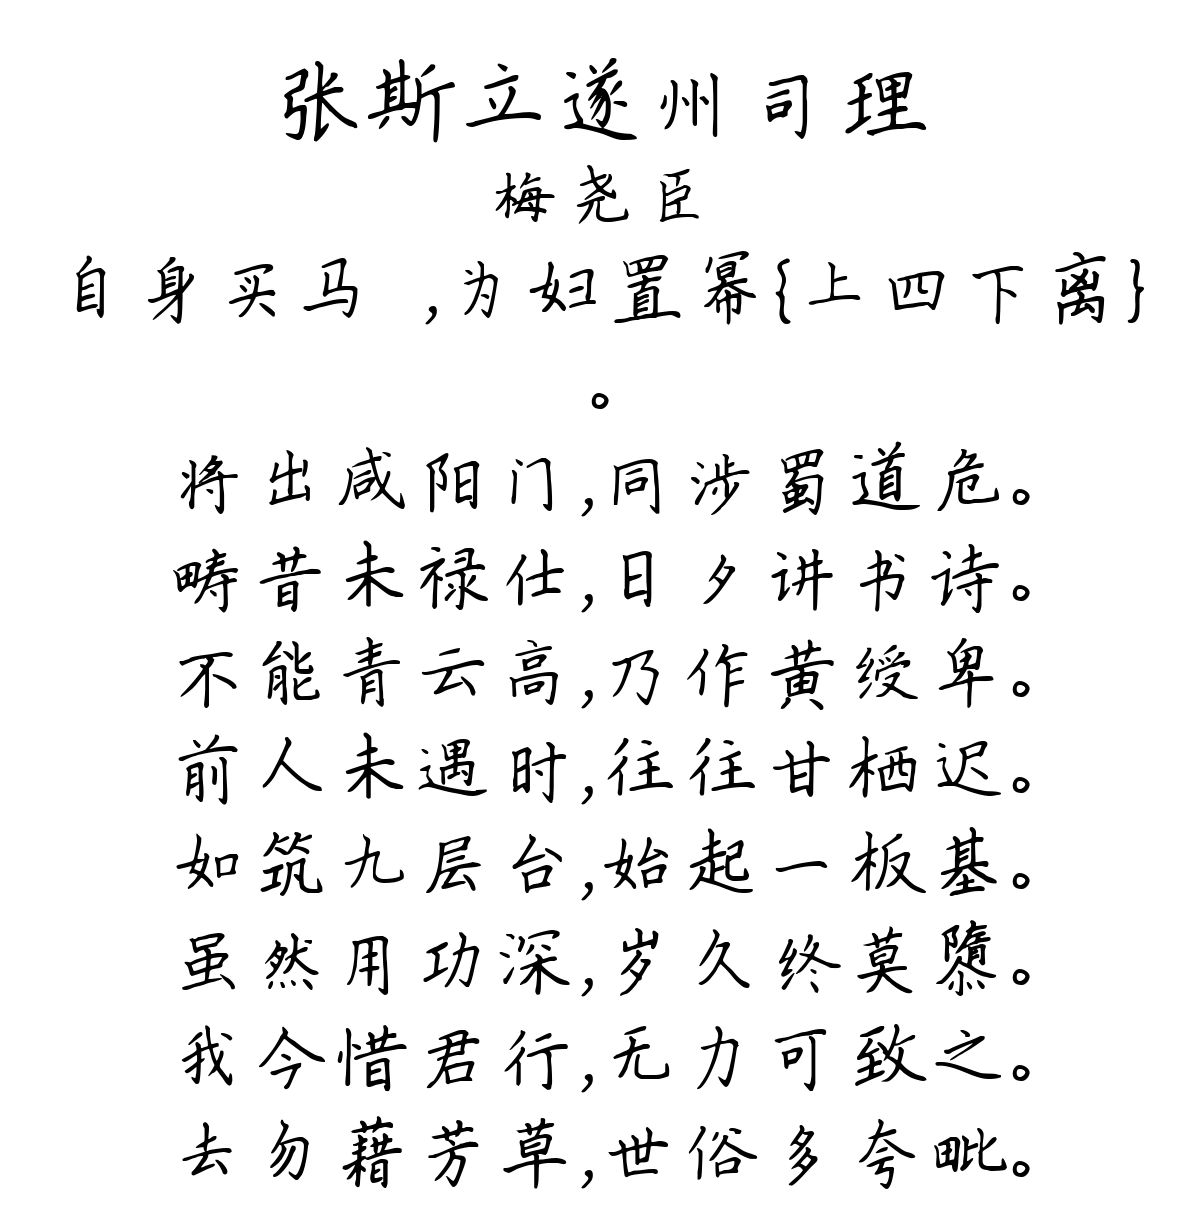 张斯立遂州司理
梅尧臣
自身买马 ,为妇置幂{上四下离}
。
将出咸阳门,同涉蜀道危。
畴昔未禄仕,日夕讲书诗。
不能青云高,乃作黄绶卑。
前人未遇时,往往甘栖迟。
如筑九层台,始起一板基。
虽然用功深,岁久终莫隳。
我今惜君行,无力可致之。
去勿藉芳草,世俗多夸毗。